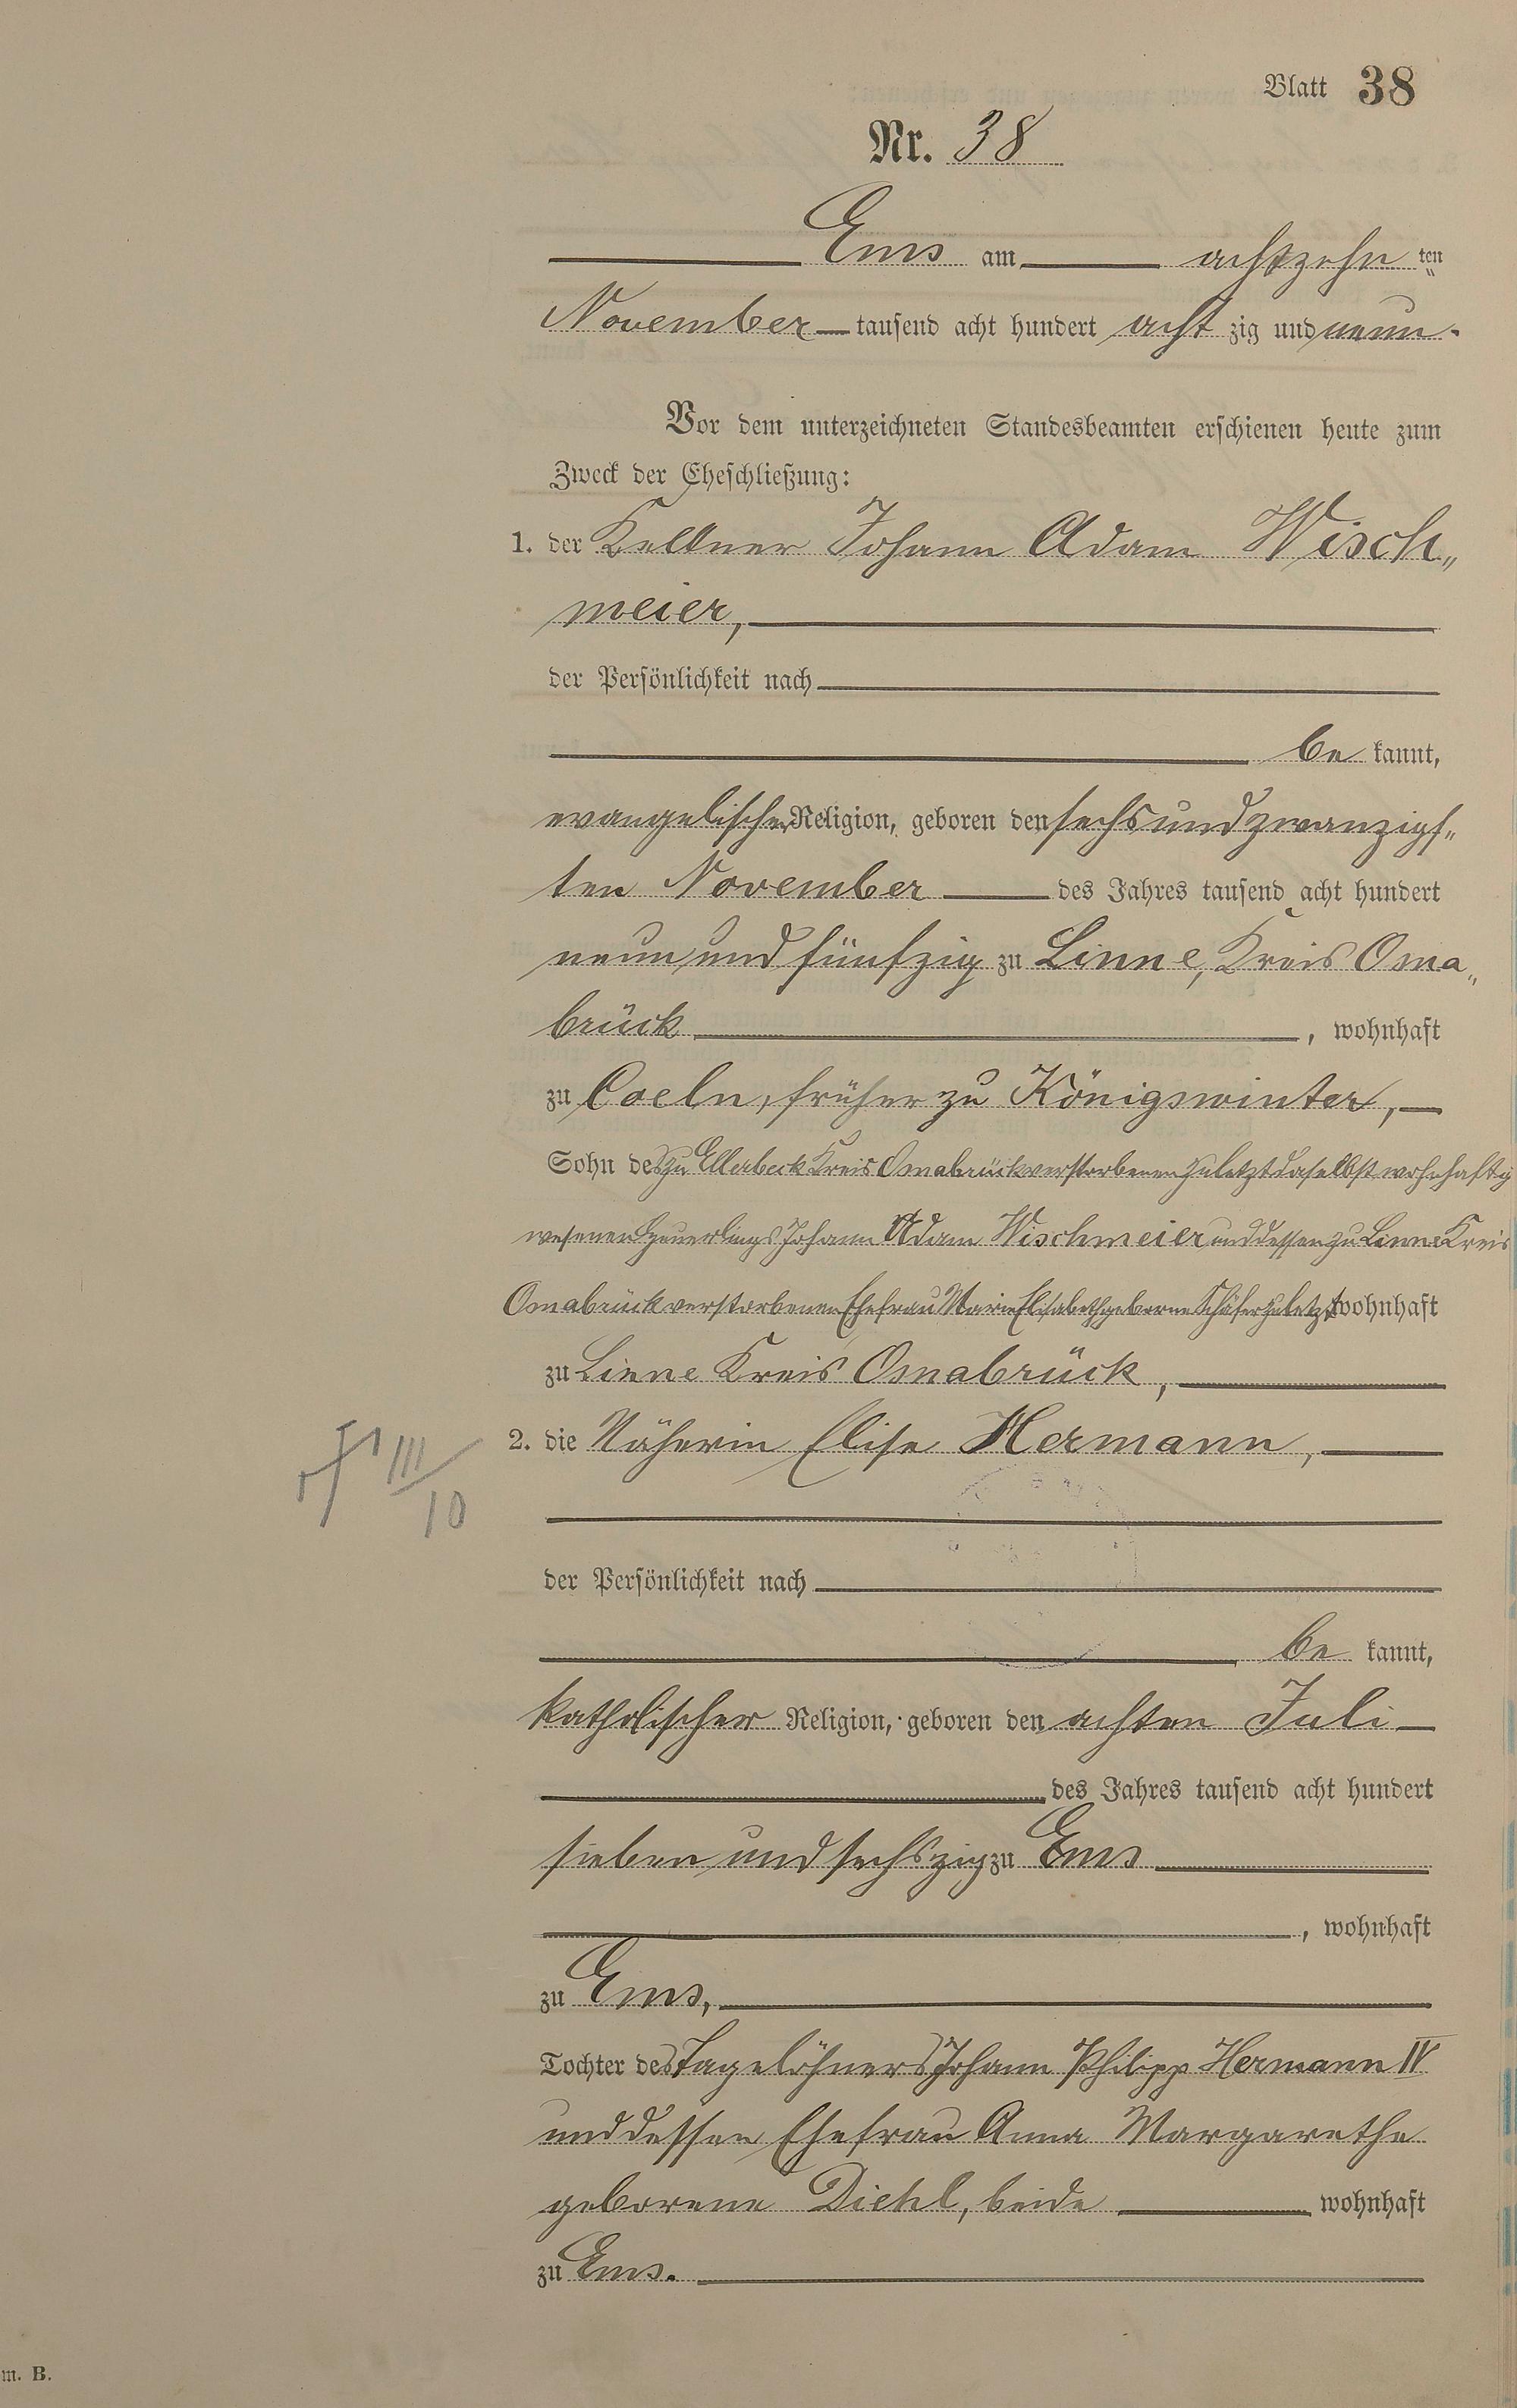 Blatt 38
Nr. 38
Ems am achtzehn ten
November tausend acht hundert acht zig und neun.
Vor dem unterzeichneten Standesbeamten erschienen heute zum
Zweck der Eheschließung:
1. der Kellner Johann Adam Wisch„
meier,
der Persönlichkeit nach
be kannt,
evangelischer Religion, geboren den sechsundzwanzigs„
ten November des Jahres tausend acht hundert
neun und fünfzig zu Linne, Kreis Osna„
brück, wohnhaft
zu Coeln, früher zu Königswinter,
Sohn des zu Ellerbeck Kreis Osnabrück verstorbenen zuletzt daselbst wohnhaft ge
wesenen Heuerlings Johann Adam Wischmeier und dessen zu Linne Kreis
Osnabrück verstorbenen Ehefrau Marie Elisabeth geborene Schäfer zuletzt wohnhaft
zu Linne Kreis Osnabrück,
2. die Näherin Elise Hermann,
III
10
der Persönlichkeit nach
be kannt,
katholischer Religion, geboren den achten Juli
des Jahres tausend acht hundert
sieben und sechszig zu Ems
, wohnhaft
zu Ems,
Tochter des Tagelöhners Johann Philipp Hermann IV
und dessen Ehefrau Anna Margarethe
geborene Diehl, beide wohnhaft
zu Ems.
m. B.